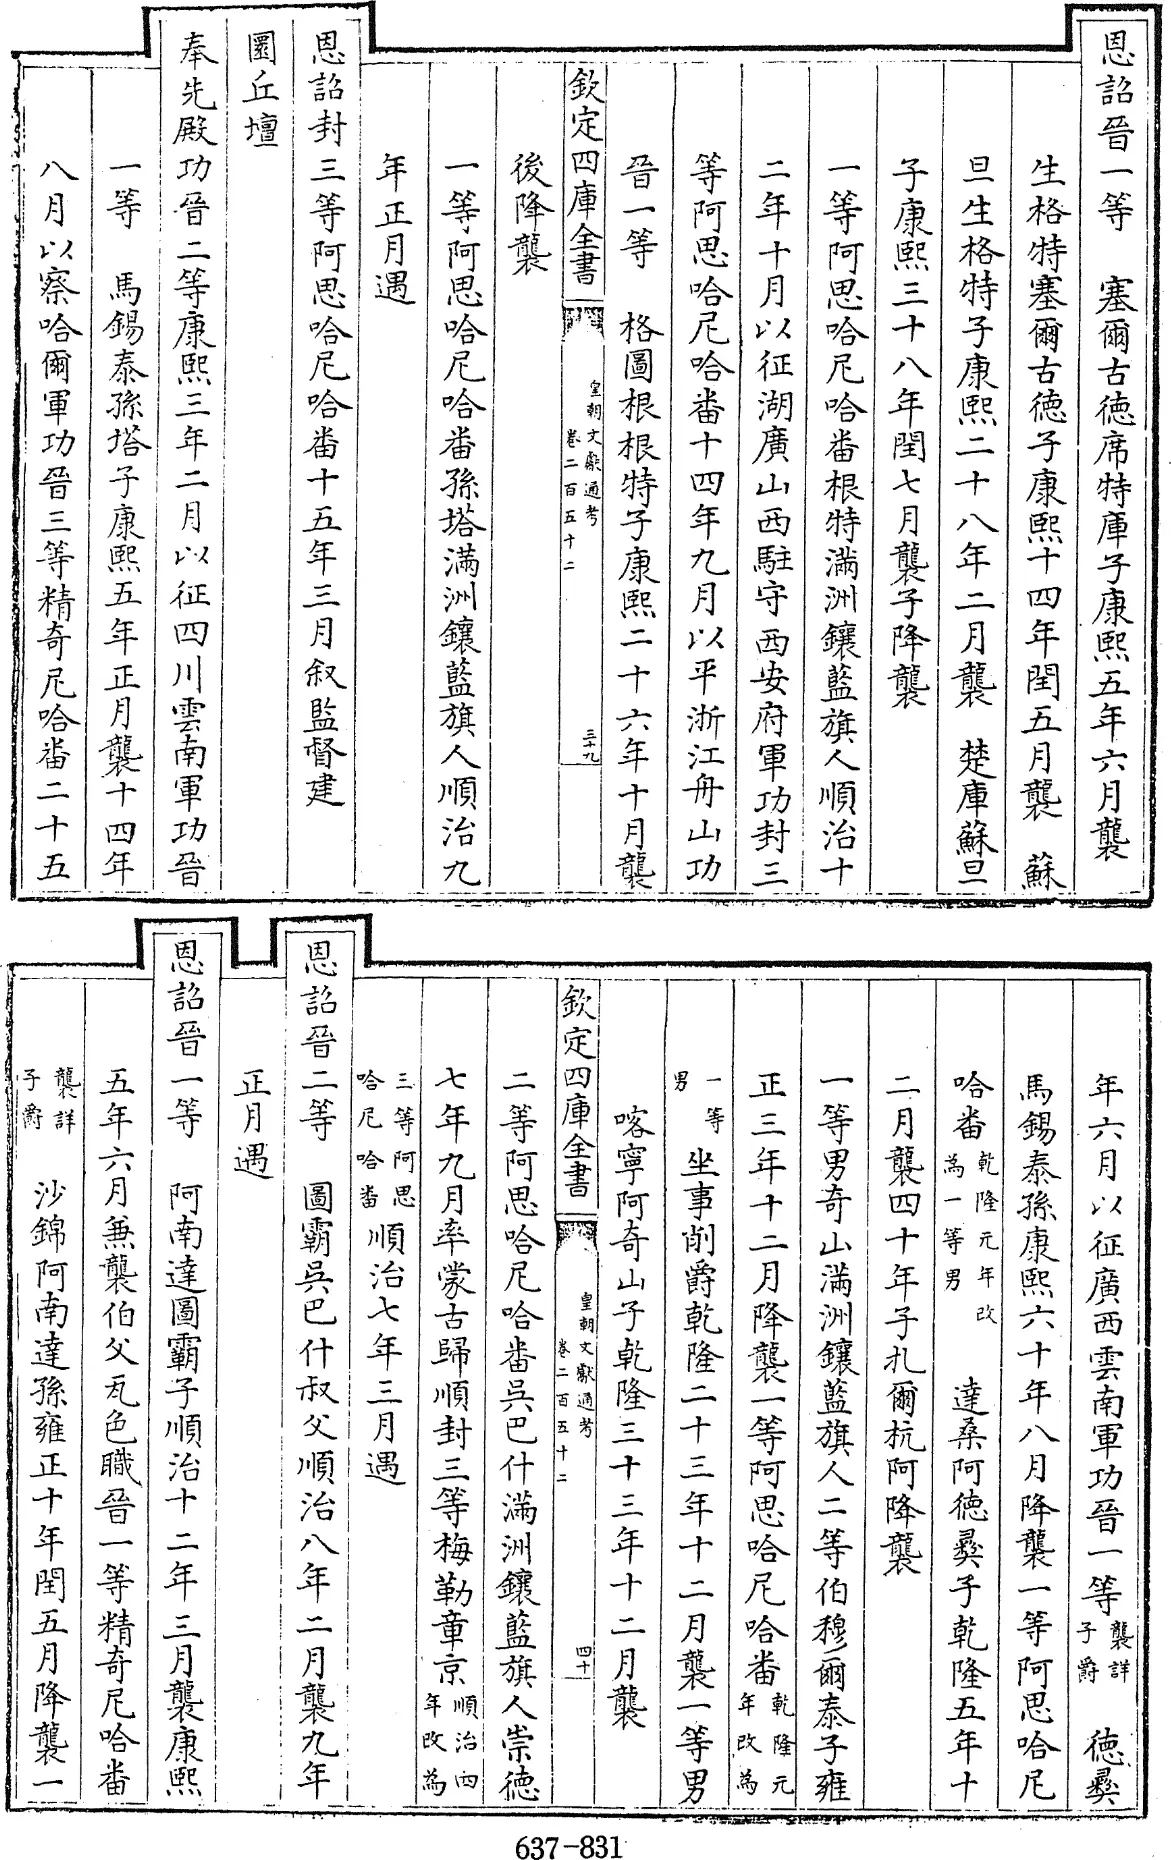 恩詔晉一等　塞爾古徳席特庫子康熙五年六月襲
生格特塞爾古徳子康熙十四年閏五月襲　蘇
旦生格特子康熙二十八年二月襲　楚庫蘇旦
子康熙三十八年閏七月襲子降襲
一等阿思哈尼哈番根特滿洲鑲藍旗人順治十
二年十月以征湖廣山西駐守西安府軍功封三
等阿思哈尼哈番十四年九月以平浙江舟山功
晉一等　格圖根根特子康熙二十六年十月襲
欽定四庫全書
皇朝文獻通考
卷二百五十二
三十九
後降襲
一等阿思哈尼哈番孫塔滿洲鑲藍旗人順治九
年正月遇
恩詔封三等阿思哈尼哈番十五年三月叙監督建
圜丘壇
奉先殿功晉二等康熙三年二月以征四川雲南軍功晉
一等　馬錫泰孫塔子康熙五年正月襲十四年
八月以察哈爾軍功晉三等精奇尼哈番二十五
年六月以征廣西雲南軍功晉一等襲詳子爵　徳彜
馬錫泰孫康熙六十年八月降襲一等阿思哈尼
哈番乾隆元年改為一等男　達桑阿徳彜子乾隆五年十
二月襲四十年子扎爾杭阿降襲
一等男奇山滿洲鑲藍旗人二等伯穆爾泰子雍
正三年十二月降襲一等阿思哈尼哈番乾隆元年改為
一等男　坐事削爵乾隆二十三年十二月襲一等男
喀寧阿奇山子乾隆三十三年十二月襲
欽定四庫全書
皇朝文獻通考
卷二百五十二
四十
二等阿思哈尼哈番吳巴什滿洲鑲藍旗人崇徳
七年九月率蒙古歸順封三等梅勒章京順治四年改為
三等阿思哈尼哈番順治七年三月遇
恩詔晉二等　圖霸吳巴什叔父順治八年二月襲九年
正月遇
恩詔晉一等　阿南達圖霸子順治十二年三月襲康熙
五年六月兼襲伯父瓦色職晉一等精奇尼哈番
襲詳子爵　沙錦阿南達孫雍正十年閏五月降襲一
637-831